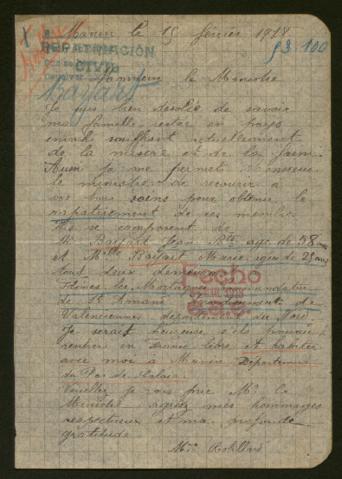 Manin le 15 février 1918
93.100
Monsieur le Ministre
Je suis bien désolée de savoir
ma famille restée en pays
envahi souffrant actuellement
de la misère et de la faim.
Aussi je me permet Monsieur
le ministre de recourir a
vos bons soins pour obtenir le
rapatriement de ces membres
se compose de
Mr Bayart Jean Bte age de 58 ans
et Mlle Bayart Marie agée de 25 ans
tous deux
Flines les Mortagne
de St Amand arrondissement de
Valenciennes département du Nord
Je serait heureuse s'ils pouvaient
rentrer en France libre et habiter
avec moi a Manin Département
du Pas de Calais
Veuillez je vous prie Mr le
Ministre agréez mes hommages
respectueux et ma profonde
gratitude
Mme